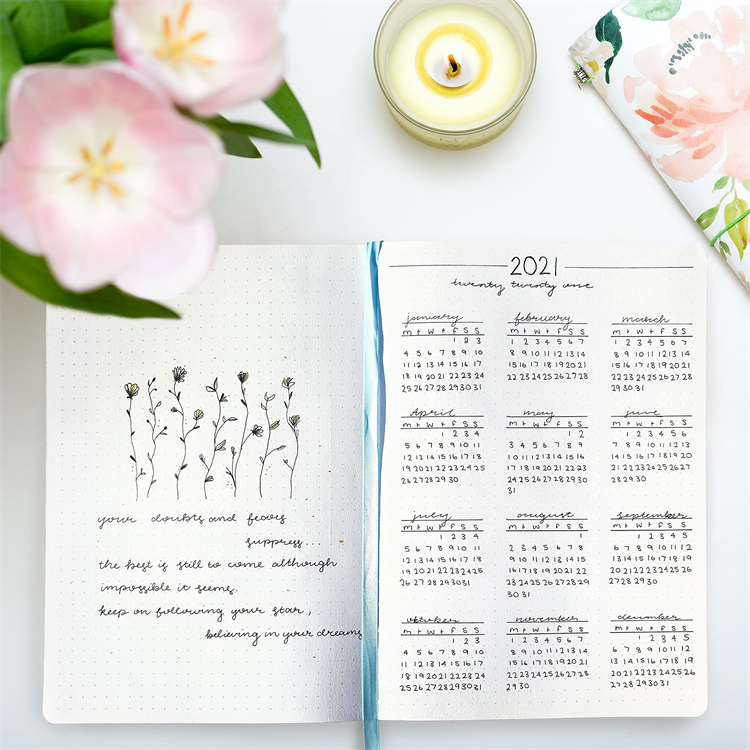 your doubts and fears
suppress...
the best is still to come although
impossible it seems.
keep on following your star,
believing in your dreams
2021
twenty twenty one
january
m t w t f s s
1 2 3
4 5 6 7 8 9 10
11 12 13 14 15 16 17
18 19 20 21 22 23 24
25 26 27 28 29 30 31
february
m t w t f s s
1 2 3 4 5 6 7
8 9 10 11 12 13 14
15 16 17 18 19 20 21
22 23 24 25 26 27 28
march
m t w t f s s
1 2 3 4 5 6 7
8 9 10 11 12 13 14
15 16 17 18 19 20 21
22 23 24 25 26 27 28
29 30 31
April
m t w t f s s
1 2 3 4
5 6 7 8 9 10 11
12 13 14 15 16 17 18
19 20 21 22 23 24 25
26 27 28 29 30
may
m t w t f s s
1 2
3 4 5 6 7 8 9
10 11 12 13 14 15 16
17 18 19 20 21 22 23
24 25 26 27 28 29 30
31
june
m t w t f s s
1 2 3 4 5 6
7 8 9 10 11 12 13
14 15 16 17 18 19 20
21 22 23 24 25 26 27
28 29 30
july
m t w t f s s
1 2 3 4
5 6 7 8 9 10 11
12 13 14 15 16 17 18
19 20 21 22 23 24 25
26 27 28 29 30 31
august
m t w t f s s
1
2 3 4 5 6 7 8
9 10 11 12 13 14 15
16 17 18 19 20 21 22
23 24 25 26 27 28 29
30 31
september
m t w t f s s
1 2 3 4 5
6 7 8 9 10 11 12
13 14 15 16 17 18 19
20 21 22 23 24 25 26
27 28 29 30
oktober
m t w t f s s
1 2 3
4 5 6 7 8 9 10
11 12 13 14 15 16 17
18 19 20 21 22 23 24
25 26 27 28 29 30 31
november
m t w t f s s
1 2 3 4 5 6 7
8 9 10 11 12 13 14
15 16 17 18 19 20 21
22 23 24 25 26 27 28
29 30
december
m t w t f s s
1 2 3 4 5
6 7 8 9 10 11 12
13 14 15 16 17 18 19
20 21 22 23 24 25 26
27 28 29 30 31